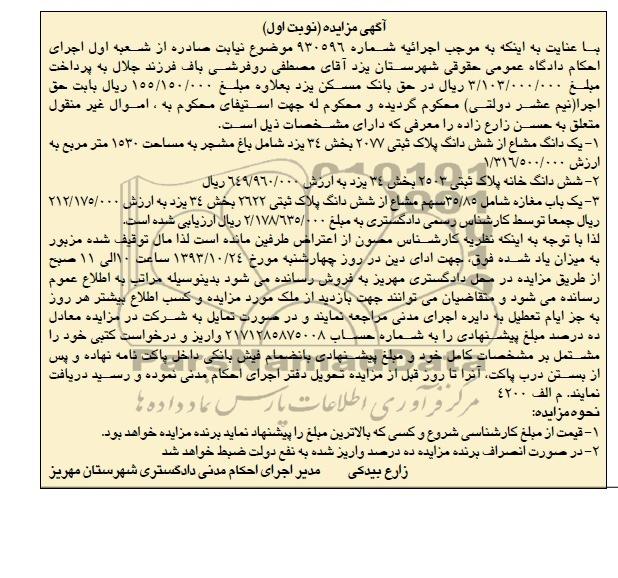 آگهی مزایده (نوبت اول)
با عنایت به اینکه به موجب اجرائیه شماره ۹۳۰۵۹۶ موضوع نیابت صادره از شعبه اول اجرای
احکام دادگاه عمومی حقوقی شهرستان یزد آقای مصطفی روفرشی باف فرزند جلال به پرداخت
مبلغ ۳/۱۰۳/۰۰۰/۰۰۰ ریال در حق بانک مسکن یزد بعلاوه مبلغ ۱۵۵/۱۵۰/۰۰۰ ریال بابت حق
اجرا(نیم عشر دولتی) محکوم گردیده و محکوم له جهت استیفای محکوم به ، اموال غیر منقول
متعلق به حسن زارع زاده را معرفی که دارای مشخصات ذیل است.
۱- یک دانگ مشاع از شش دانگ پلاک ثبتی ۲۰۷۷ بخش ۳۴ یزد شامل باغ مشجر به مساحت ۱۵۳۰ متر مربع به
ارزش ۱/۳۱۶/۵۰۰/۰۰۰
۲- شش دانگ خانه پلاک ثبتی ۲۵۰۲ بخش ۳۴ یزد به ارزش ۶۴۹/۹۶۰/۰۰۰ ریال
۳- یک باب مغازه شامل ۳۵/۸۵سهم مشاع از شش دانگ پلاک ثبتی ۲۶۲۲ بخش ۳۴ یزد به ارزش ۲۱۲/۱۷۵/۰۰۰
ریال جمعا توسط کارشناس رسمی دادگستری به مبلغ ۲/۱۷۸/۶۳۵/۰۰۰ ریال ارزیابی شده است.
لذا با توجه به اینکه نظریه کارشناس مصون از اعتراض طرفین مانده است لذا مال توقیف شده مزبور
به میزان یاد شده فوق، جهت ادای دین در روز چهارشنبه مورخ ۱۳۹۳/۱۰/۲۴ ساعت ۱۰الی ۱۱ صبح
از طریق مزایده در محل دادگستری مهریز به فروش رسانده می شود بدینوسیله مراتب به اطلاع عموم
رسانده می شود و متقاضیان می توانند جهت بازدید از ملک مورد مزایده و کسب اطلاع بیشتر هر روز
به جز ایام تعطیل به دایره اجرای مدنی مراجعه نمایند و در صورت تمایل به شرکت در مزایده معادل
ده درصد مبلغ پیشنهادی را به شماره حساب ۲۱۷۱۲۸۵۸۷۵۰۰۸ واریز و درخواست کتبی خود را
مشتمل بر مشخصات کامل خود و مبلغ پیشنهادی بانضمام فیش بانکی داخل پاکت نامه نهاده و پس
از بستن درب پاکت، آنرا تا روز قبل از مزایده تحویل دفتر اجرای احکام مدنی نموده و رسید دریافت
نمایند. م الف ۴۲۰۰
نحوه مزایده:
۱- قیمت از مبلغ کارشناسی شروع و کسی که بالاترین مبلغ را پیشنهاد نماید برنده مزایده خواهد بود.
۲- در صورت انصراف برنده مزایده ده درصد واریز شده به نفع دولت ضبط خواهد شد
زارع بیدکی مدیر اجرای احکام مدنی دادگستری شهرستان مهریز
ParsNamadData
مرکز فرآوری اطلاعات پارس نماد داده ها